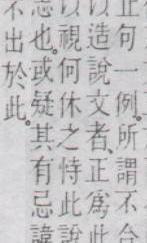 正句一例。所謂不合
以造說文者、正爲此
以視何休之恃此說
忌也。或疑其有忌諱
不出於此。